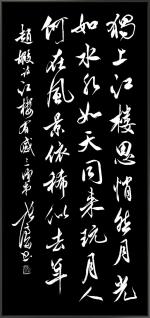 獨上江樓思悄然月光
如水水如天同来玩月人
何在風景依稀似去年
趙嘏江樓有感